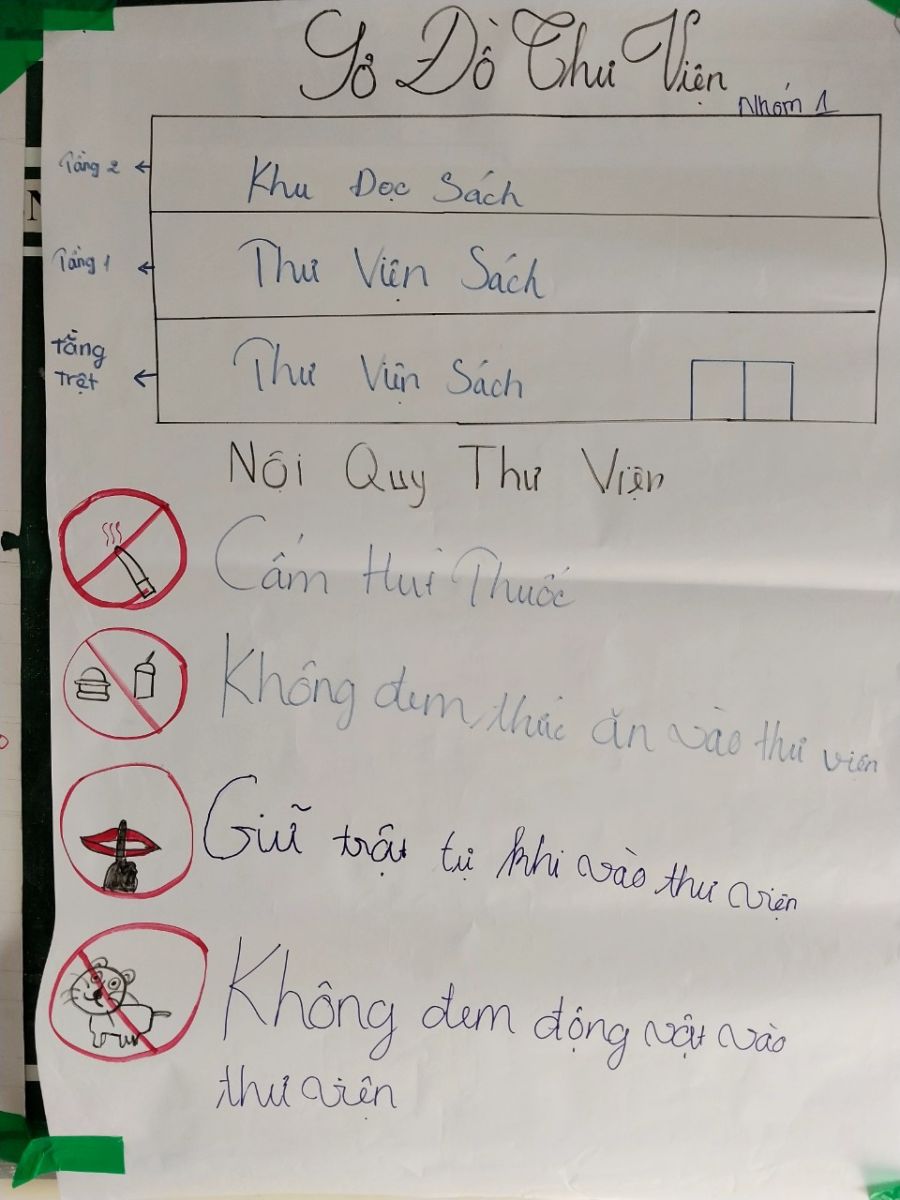 Sơ Đồ Thư Viện
Nhóm 1
Tầng 2
Khu Đọc Sách
Tầng 1
Thư Viện Sách
Tầng
Trệt
Thư Viện Sách
Nội Quy Thư Viện
Cấm Hút Thuốc
Không đem thức ăn vào thư viện
Giữ trật tự khi vào thư viện
Không đem động vật vào
thư viện